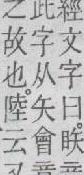 經文字曰䀢音
此字从矢會意
之故也。陸云